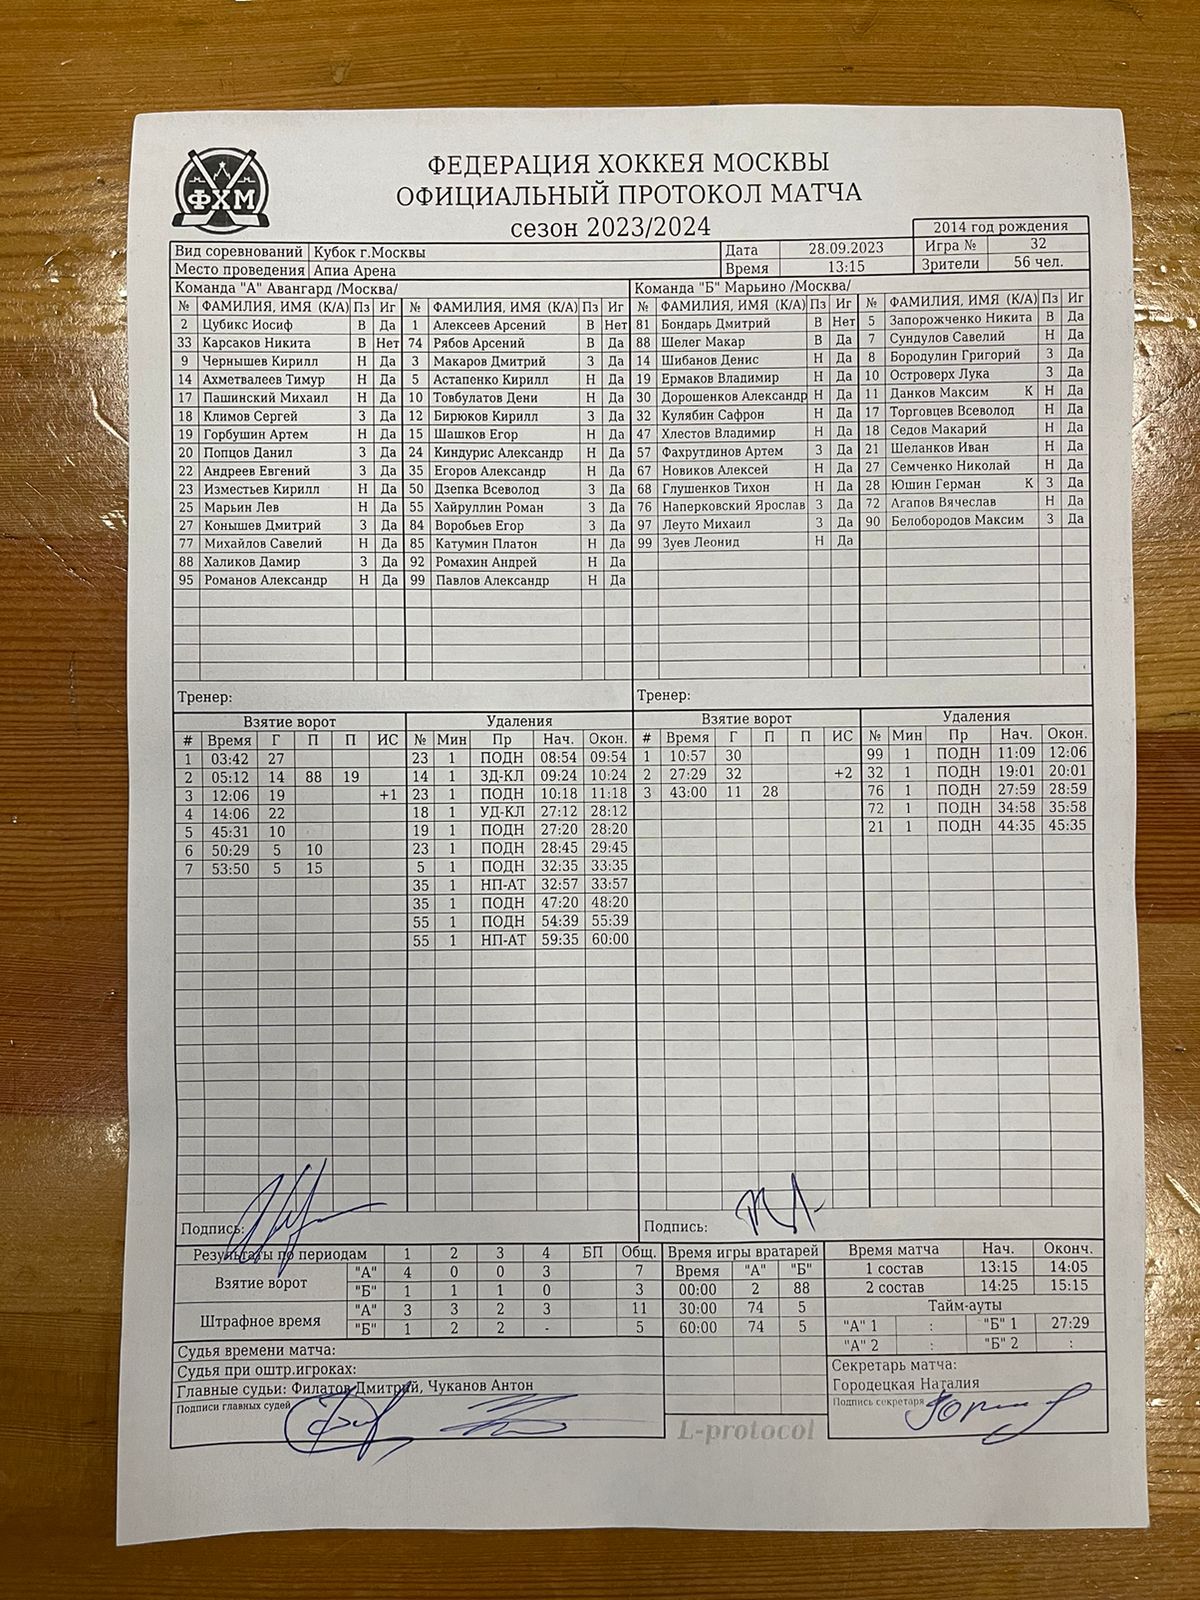 ФХМ
ФЕДЕРАЦИЯ ХОККЕЯ МОСКВЫ
ОФИЦИАЛЬНЫЙ ПРОТОКОЛ МАТЧА
сезон 2023/2024
2014 год рождения
Вид соревнований Кубок г.Москвы Дата 28.09.2023 Игра № 32
Место проведения Апиа Арена Время 13:15 Зрители 56 чел.
Команда "А" Авангард /Москва/ Команда "Б" Марьино /Москва/
№ ФАМИЛИЯ, ИМЯ (К/А) Пз Иг № ФАМИЛИЯ, ИМЯ (К/А) Пз Иг № ФАМИЛИЯ, ИМЯ (К/А) Пз Иг № ФАМИЛИЯ, ИМЯ (К/А) Пз Иг
2 Цубикс Иосиф В Да 1 Алексеев Арсений В Нет 81 Бондарь Дмитрий В Нет 5 Запорожченко Никита В Да
33 Карсаков Никита В Нет 74 Рябов Арсений В Да 88 Шелег Макар В Да 7 Сундулов Савелий Н Да
9 Чернышев Кирилл Н Да 3 Макаров Дмитрий З Да 14 Шибанов Денис Н Да 8 Бородулин Григорий З Да
14 Ахметвалеев Тимур Н Да 5 Астапенко Кирилл Н Да 19 Ермаков Владимир Н Да 10 Островерх Лука З Да
17 Пашинский Михаил Н Да 10 Товбулатов Дени Н Да 30 Дорошенков Александр Н Да 11 Данков Максим К Н Да
18 Климов Сергей З Да 12 Бирюков Кирилл З Да 32 Кулябин Сафрон Н Да 17 Торговцев Всеволод Н Да
19 Горбушин Артем Н Да 15 Шашков Егор Н Да 47 Хлестов Владимир Н Да 18 Седов Макарий Н Да
20 Попцов Данил З Да 24 Киндурис Александр Н Да 57 Фахрутдинов Артем З Да 21 Шеланков Иван Н Да
22 Андреев Евгений З Да 35 Егоров Александр Н Да 67 Новиков Алексей Н Да 27 Семченко Николай Н Да
23 Изместьев Кирилл Н Да 50 Дзепка Всеволод З Да 68 Глушенков Тихон Н Да 28 Юшин Герман К З Да
25 Марьин Лев Н Да 55 Хайруллин Роман З Да 76 Наперковский Ярослав З Да 72 Агапов Вячеслав Н Да
27 Конышев Дмитрий З Да 84 Воробьев Егор З Да 97 Леуто Михаил З Да 90 Белобородов Максим З Да
77 Михайлов Савелий Н Да 85 Катумин Платон Н Да 99 Зуев Леонид Н Да
88 Халиков Дамир З Да 92 Ромахин Андрей Н Да
95 Романов Александр Н Да 99 Павлов Александр Н Да
Тренер: Тренер:
Взятие ворот Удаления Взятие ворот Удаления
# Время Г П П ИС № Мин Пр Нач. Окон. # Время Г П П ИС № Мин Пр Нач. Окон.
1 03:42 27 23 1 ПОДН 08:54 09:54 1 10:57 30 99 1 ПОДН 11:09 12:06
2 05:12 14 88 19 14 1 ЗД-КЛ 09:24 10:24 2 27:29 32 +2 32 1 ПОДН 19:01 20:01
3 12:06 19 +1 23 1 ПОДН 10:18 11:18 3 43:00 11 28 76 1 ПОДН 27:59 28:59
4 14:06 22 18 1 УД-КЛ 27:12 28:12 72 1 ПОДН 34:58 35:58
5 45:31 10 19 1 ПОДН 27:20 28:20 21 1 ПОДН 44:35 45:35
6 50:29 5 10 23 1 ПОДН 28:45 29:45
7 53:50 5 15 5 1 ПОДН 32:35 33:35
35 1 НП-АТ 32:57 33:57
35 1 ПОДН 47:20 48:20
55 1 ПОДН 54:39 55:39
55 1 НП-АТ 59:35 60:00
Подпись: Подпись:
Результаты по периодам 1 2 3 4 БП Общ. Время игры вратарей Время матча Нач. Оконч.
Взятие ворот "А" 4 0 0 3 7 Время "А" "Б" 1 состав 13:15 14:05
"Б" 1 1 1 0 3 00:00 2 88 2 состав 14:25 15:15
Штрафное время "А" 3 3 2 3 11 30:00 74 5 Тайм-ауты
"Б" 1 2 2 - 5 60:00 74 5 "А" 1 : "Б" 1 27:29
"А" 2 : "Б" 2 :
Судья времени матча:
Судья при оштр.игроках: Секретарь матча:
Главные судьи: Филатов Дмитрий, Чуканов Антон Городецкая Наталия
Подписи главных судей Подпись секретаря
L-protocol